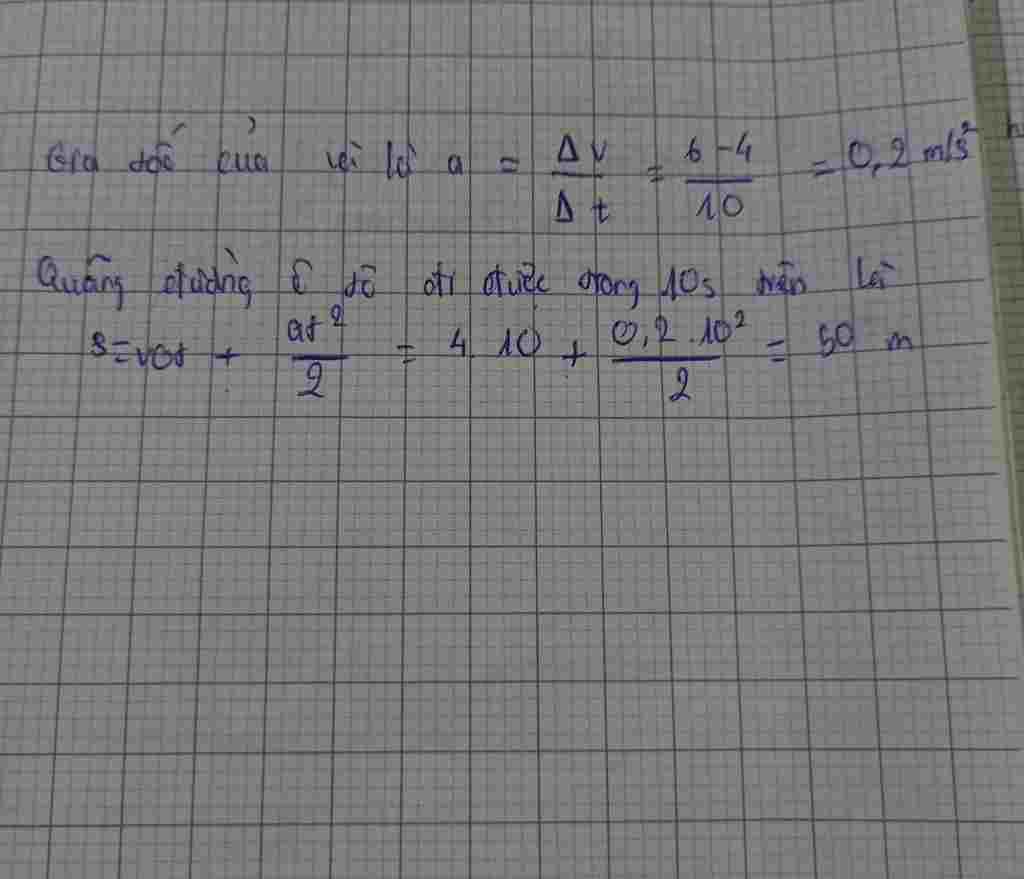 Gia tốc của vật là a = Δv/Δt = 6-4/10 = 0,2 m/s²
Quãng đường ô tô đi được trong 10s trên là
s = v0t + at²/2 = 4.10 + 0,2.10²/2 = 50 m